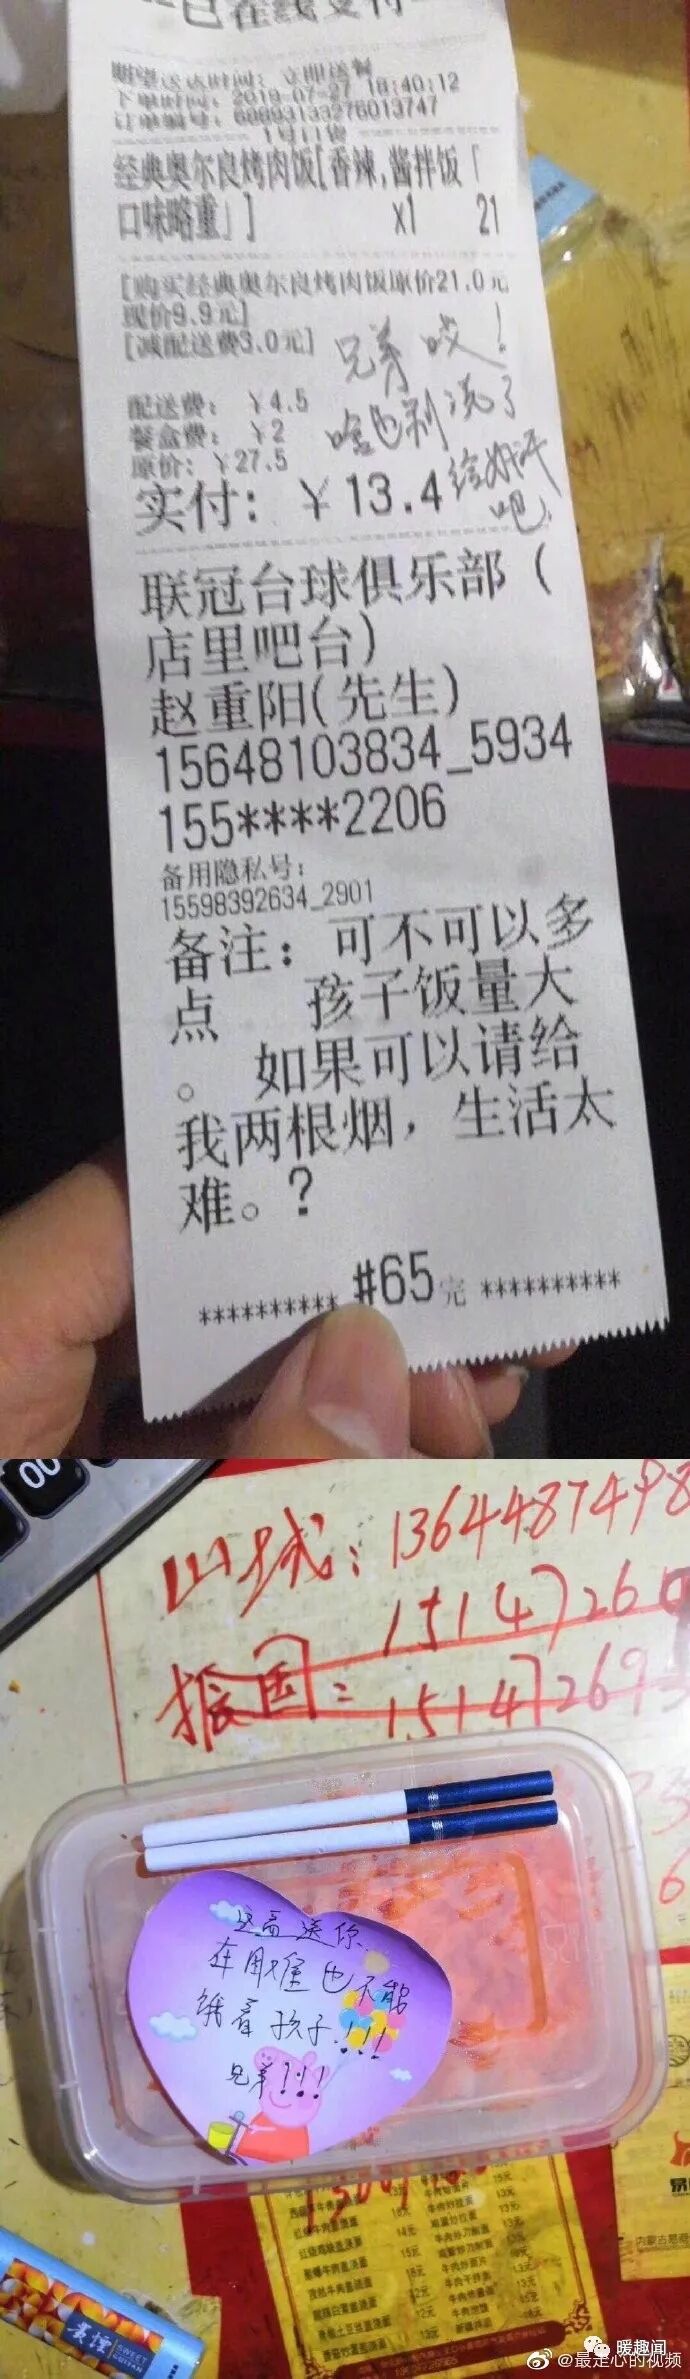 已在线支付
期望送达时间：立即送餐
下单时间：2019-07-27 18:40:12
订单编号：60893133276013747
1号口袋
经典奥尔良烤肉饭[香辣,酱拌饭「
口味略重」] x1 21
[购买经典奥尔良烤肉饭原价21.0元
现价9.9元]
[减配送费3.0元]
兄弟哎！
配送费： ￥4.5
啥也别说了
餐盒费： ￥2
原价：￥27.5
给好评
实付：￥13.4
吧
联冠台球俱乐部（
店里吧台）
赵重阳(先生)
15648103834_5934
155****2206
备用隐私号：
15598392634_2901
备注：可不可以多
点 孩子饭量大
。 如果可以请给
我两根烟，生活太
难。?
********** #65完 **********
00
山城：13644874498
15147260
振国：151472693
这盒送你
在困难也不能
饿着孩子!!!
兄弟!!!
SWEET
暖趣闻
@最走心的视频